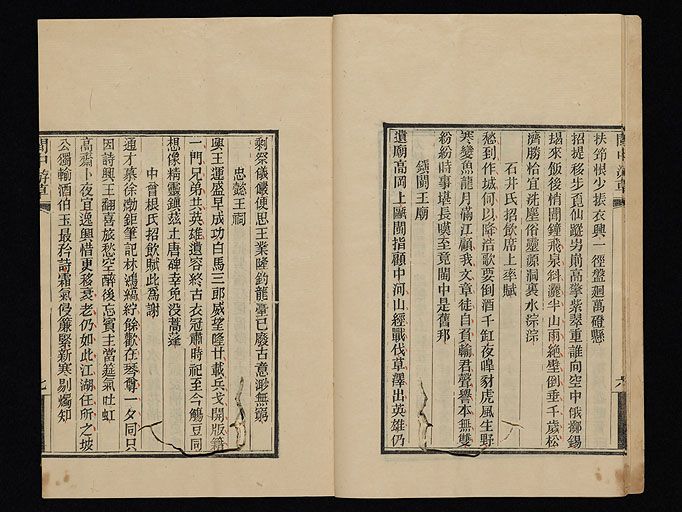 扶筇根少振衣興一徑盤迴萬磴懸
招提移步覓仙蹤男崩高擎紫翠重誰向空中俄擲錫
朅來飯後悄聞鐘飛泉斜灑半山雨絕壁倒垂千歲松
濟勝恰宜洗塵俗靈源洞裏水淙淙
石井氏招飲席上率賦
愁到作城何以降浩歌要倒酒千缸夜嘷豺虎風生野
寒變魚龍月滿江顧我文章徒自負輸君聲譽本無雙
紛紛時事堪長嘆至竟閩中是舊邦
鎮閩王廟
遺廟高岡上歐閩指顧中河山經戰伐草澤出英雄仍
剩祭儀儼便思王業隆釣龍臺已廢古意渺無窮
忠懿王祠
興王運盛早成功白馬三郎威望隆廿載兵戈開版籍
一門兄弟共英雄遺容終古衣冠肅時祀至今觴豆同
想像精靈鎮茲土唐碑幸免沒蒿蓬
中曾根氏招飲賦此為謝
通才慕徐渤鉅筆記林鴻縞紵餘歡在琴尊一夕同只
因詩興王翻喜旅愁空醉後忘賓主當筵氣吐虹
高齋卜夜宜逸興惜更移衰老仍如此江湖任所之坡
公獨輸酒伯玉最矜詩霜氣侵簾緊新寒剔燭知
閩中游草
七